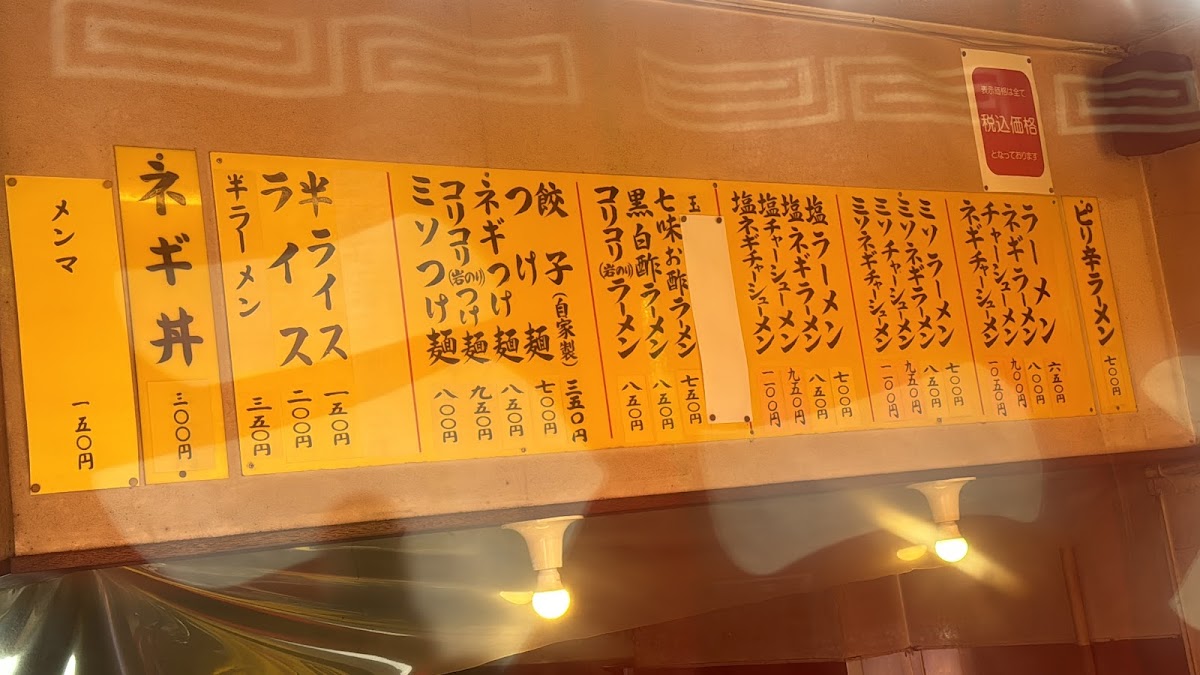 表示価格は全て
税込価格
となっております
ピリ辛ラーメン 七〇〇円
ラーメン 六五〇円
ネギラーメン 八〇〇円
チャーシューメン 九〇〇円
ネギチャーシューメン 一〇五〇円
ミソラーメン 七〇〇円
ミソネギラーメン 八五〇円
ミソチャーシューメン 九五〇円
ミソネギチャーシューメン 一一〇〇円
塩ラーメン 七〇〇円
塩ネギラーメン 八五〇円
塩チャーシューメン 九五〇円
塩ネギチャーシューメン 一一〇〇円
玉
七味お酢ラーメン 七五〇円
黒白酢ラーメン 八五〇円
コリコリ(岩のり)ラーメン 八五〇円
餃子(自家製) 三五〇円
つけ麺 七〇〇円
ネギつけ麺 八五〇円
コリコリ(岩のり)つけ麺 九五〇円
ミソつけ麺 八〇〇円
半ライス 一五〇円
ライス 二〇〇円
半ラーメン 三五〇円
ネギ丼 三〇〇円
メンマ 一五〇円